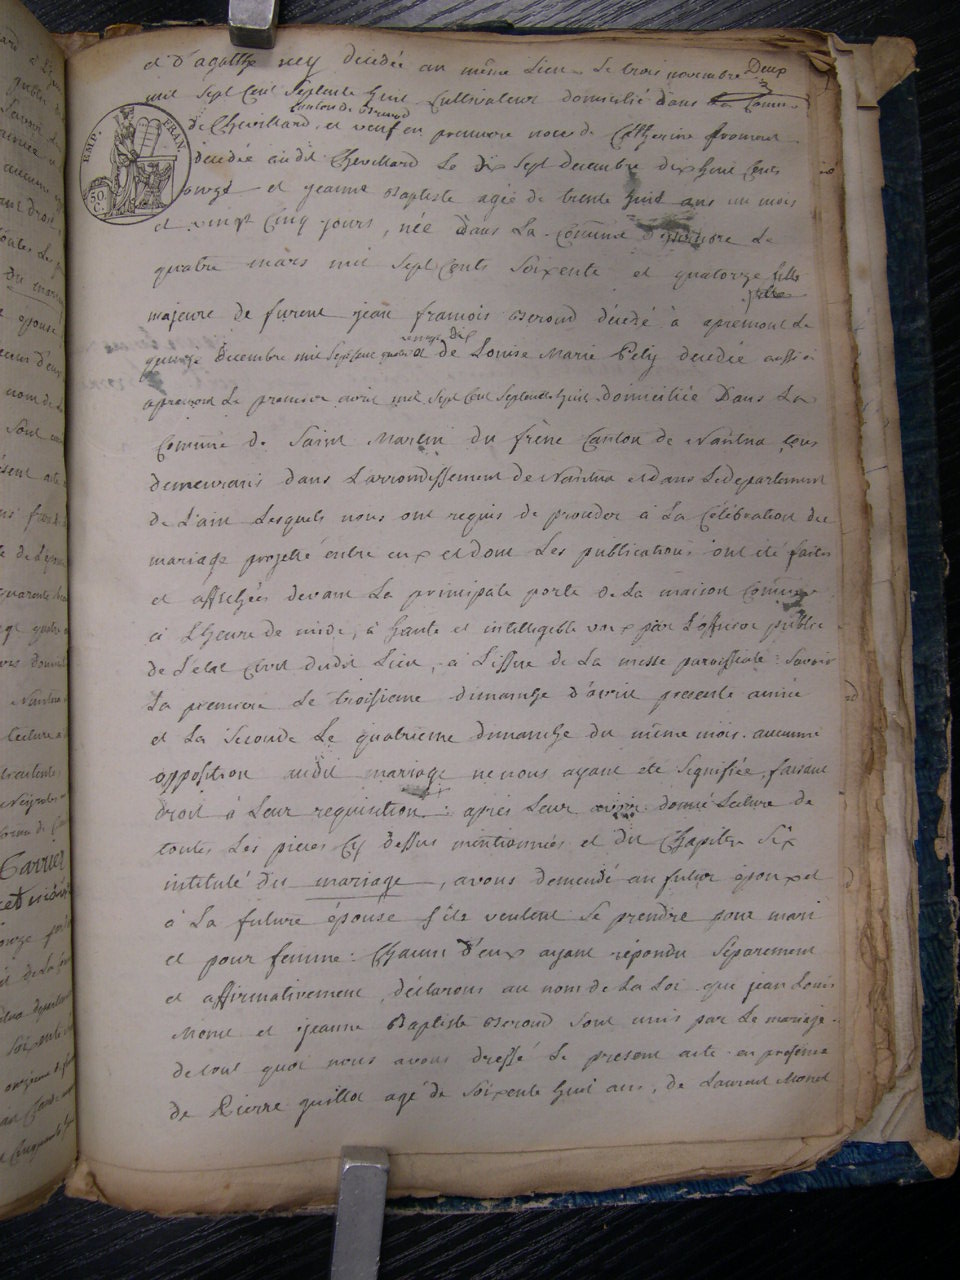 et d'agathe ney décédée au même Lieu Le trois novembre Deux
mil Sept Cent Septente huit Cultivateur domicilié dans La Comune
canton de
de Chevillard, et veuf en premiere noce de Catherine fromont
décédée audit Chevillard Le dix Sept decembre dix huit Cents
onze et jeanne Baptiste agée de trente huit ans un mois
et vingt Cinq jours, née Dans La Comune Le
quatre mars mil Sept Cents Soixente et quatorze fille
majeure de furent jean francois Beroud décédé à apremont Le
quinze décembre mil Sept Cent et de Louise Marie Pely decedée aussi à
apremont Le premier avril mil Sept Cent Septente huit domiciliée Dans La
Comune de Saint Martin du frêne Canton de Nantua tous
demeurans dans L'arrondissement de Nantua et dans Le departement
de L'ain Lesquels nous ont requis de proceder à La Célébration du
mariage projetté entre eux et dont Les publications ont été faites
et affichées devant La principale porte de La maison Comune
à L'heure de midi, à haute et intelligible voix par L'officier public
de L'état Civil dudit Lieu, à L'issue de La messe paroissiale : Savoir
La premiere Le troisieme dimanche d'avril presente année
et La Seconde Le quatrieme dimanche du même mois. aucunne
opposition audit mariage ne nous ayant eté Signifiée, faisant
droit à Leur requisition : après Leur avoir donné Lecture de
toutes Les pieces Cy dessus mentionnées et du Chapitre Six
intitulé du mariage, avons demandé au futur époux et
à La future épouse s'ils veulent Se prendre pour mari
et pour femme : Chacun d'eux ayant répondu Séparement
et affirmativement, déclarons au nom de La Loi que jean Louis
Monet et jeanne Baptiste Beroud Sont unis par Le mariage.
de tout quoi nous avons dressé Le present acte en présence
de Pierre guillot agé de Soixente huit ans, de Laurent Monet
EMP. FRAN.
50 C.